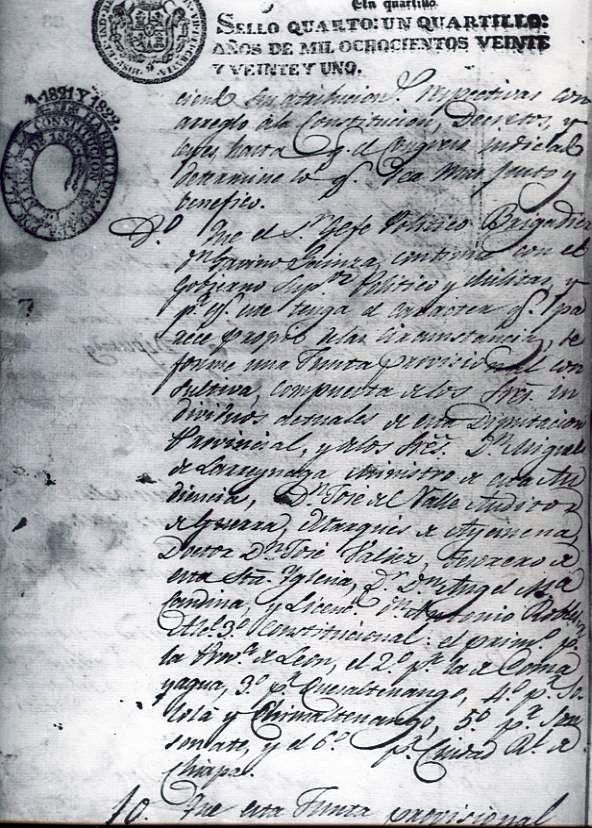 Un quartillo.
SELLO QUARTO: UN QUARTILLO:
AÑOS DE MIL OCHOCIENTOS VEINTE
Y VEINTE Y UNO.
1821 Y 1822.
ciendo sus atribucion.s respectivas con
arreglo á la Constitucion, Decretos, y
Leyes, hasta q.e el Congreso indicado
determine lo q.e sea mas justo y
benefico.
9.o Que el S.or Gefe Politico Brigadier
D.n Gavino Gainza, continue con el
Gobierno Sup.or Politico y Militar, y
p.a q.e este tenga el caracter q.e pa
rece propio de las circunstancias, se
forme una Junta provisional con
sultiva, compuesta de los Sres. in
dividuos actuales de esta Diputacion
Provincial, y de los Sres. D.n Miguel
de Larreynaga Ministro de esta Au
diencia, D.n José del Valle Auditor
de Guerra, Marques de Aycinena
Doctor D.n José Valdez, Tesorero de
esta Sta. Yglesia, D.r D.n Angel Ma.
Candina, y Licenc.do D.n Antonio Robles,
Alc.e 3.o Constitucional: el prim.o p.r
la Prov.a de Leon, el 2.o p.r la de Coma
yagua, 3.o p.r Quesaltenango, 4.o p.r So
lolá y Chimaltenango, 5.o p.r Son
sonate, y el 6.o p.r Ciudad R.l de
Chiapa.
10. Que esta Junta provisional